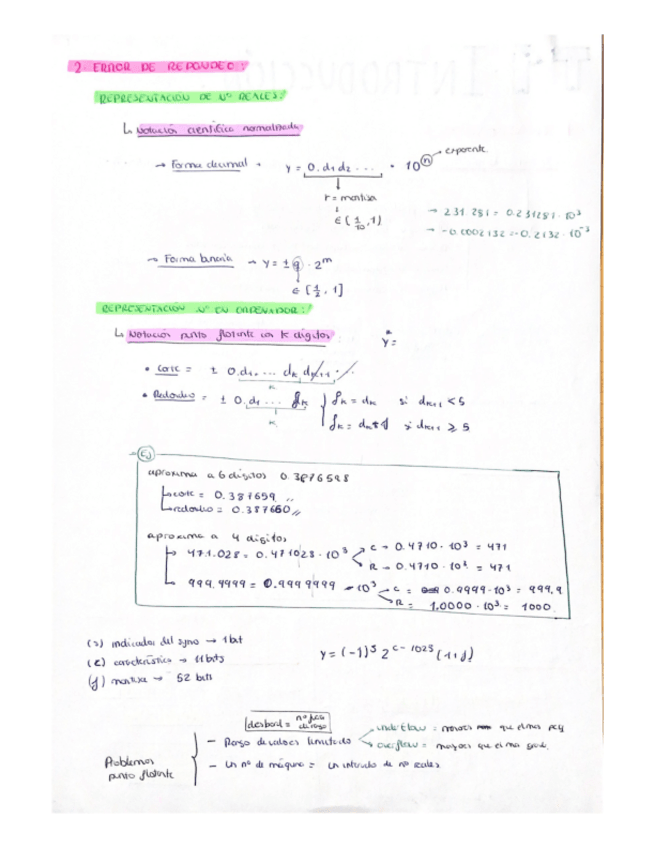 2. ERROR DE REDONDEO:
REPRESENTACIÓN DE Nº REALES:
↳ Notación científica normalizada
→ Forma decimal → y = 0.d1d2 ... · 10^n → exponente
r = mantisa
∈ [1/10, 1)
→ 231.281 = 0.231281 · 10^3
→ -0.0002132 = -0.2132 · 10^-3
→ Forma binaria → y = ± q · 2^m
∈ [1/2, 1]
REPRESENTACIÓN Nº EN ORDENADOR:
↳ Notación punto flotante con k dígitos
y =
• Corte = ± 0.d1. ... dk dk+1
k
• Redondeo = ± 0.d1 ... δk
k
δk = dk si dk+1 < 5
δk = dk+1 si dk+1 ≥ 5
Ej
aproxima a 6 dígitos 0.3876598
↳ corte = 0.387659 //
↳ redondeo = 0.387660 //
aproxima a 4 dígitos
↳ 471.028 = 0.471028 · 10^3
C → 0.4710 · 10^3 = 471
R → 0.4710 · 10^3 = 471
↳ 999.9999 = 0.9999999 · 10^3
C = 0.9999 · 10^3 = 999.9
R = 1.0000 · 10^3 = 1000
(s) indicador del signo → 1 bit
(c) característica → 11 bits
(f) mantisa → 52 bits
y = (-1)^s 2^c-1023 (1+f)
Problemas punto flotante
- Rango de valores limitado
underflow = menores que el más peq
overflow = mayores que el más grande.
- Un nº de máquina = un intervalo de nº reales.